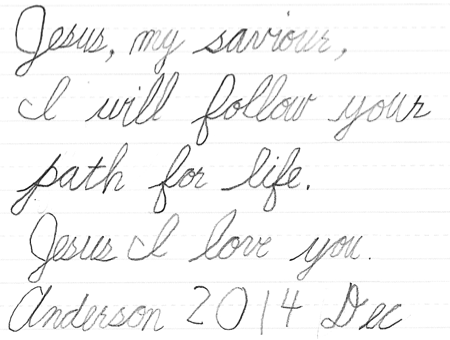 Jesus, my saviour,
I will follow your
path for life.
Jesus I love you.
Anderson 2014 Dec